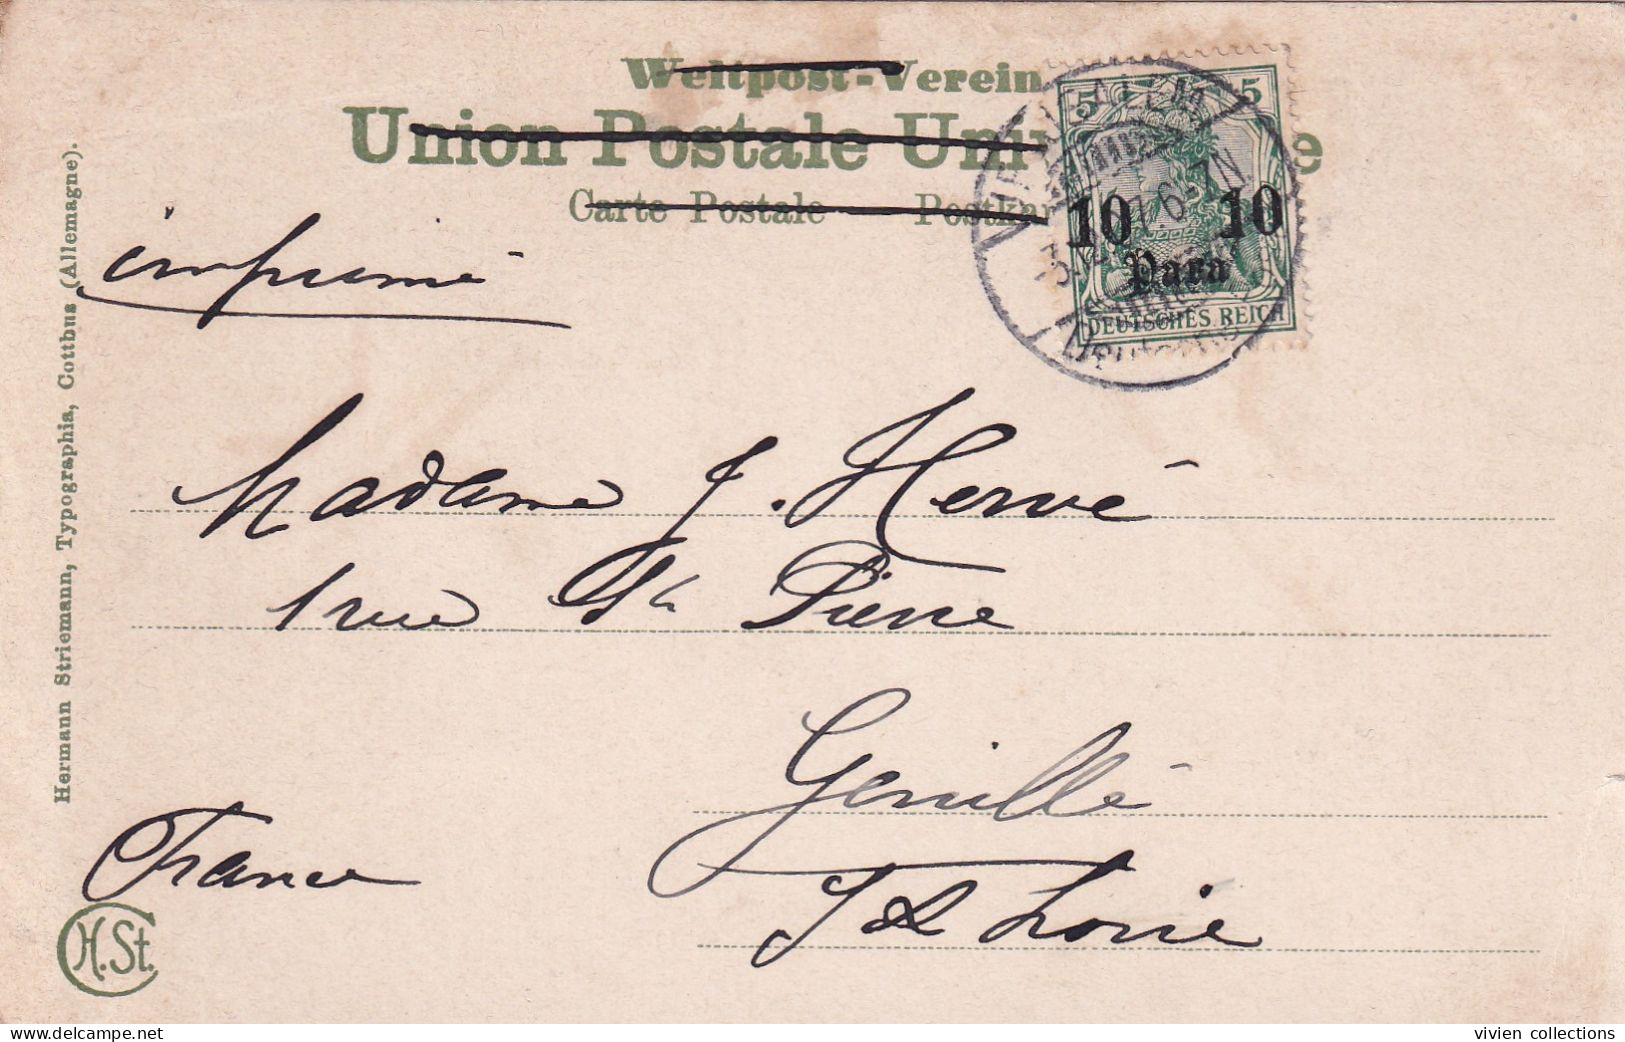 Weltpost-Verein
Union Postale
Carte Postale
imprimé
JERUSALEM
5 5
10 10
Para
DEUTSCHES REICH
Madame J. Hervé
1 rue St Pierre
Genillé
I & Loire
France
H.St.
Hermann Striemann, Typographia, Cottbus (Allemagne).
delcampe.net
vivien collections